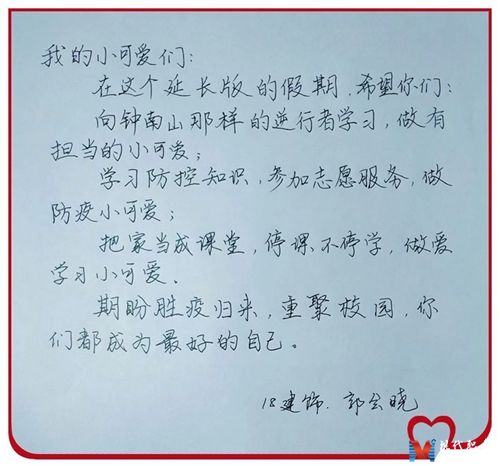 我的小可爱们:
在这个延长版的假期,希望你们:
向钟南山那样的逆行者学习,做有
担当的小可爱;
学习防控知识,参加志愿服务,做
防疫小可爱;
把家当成课堂,停课不停学,做爱
学习小可爱.
期盼胜疫归来,重聚校园,你
们都成为最好的自己。
18建饰.郭会晓
现代职